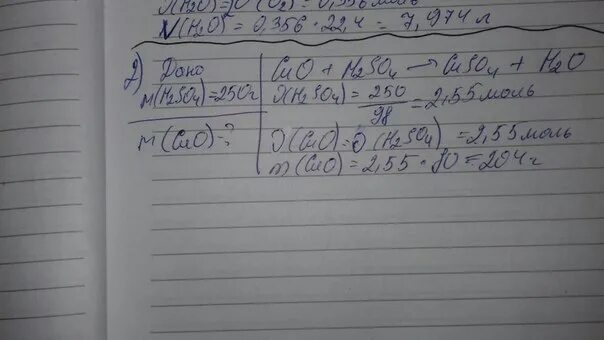 ν(H₂O)=ν(O₂)=0,356 моль
V(H₂O) = 0,356 · 22,4 = 7,974 л
2) Дано
m(H₂SO₄)=250г
m(CuO)-?
CuO + H₂SO₄ → CuSO₄ + H₂O
ν(H₂SO₄) = 250/98 = 2,55 моль
ν(CuO)=ν(H₂SO₄) = 2,55 моль
m(CuO) = 2,55 · 80 = 204 г